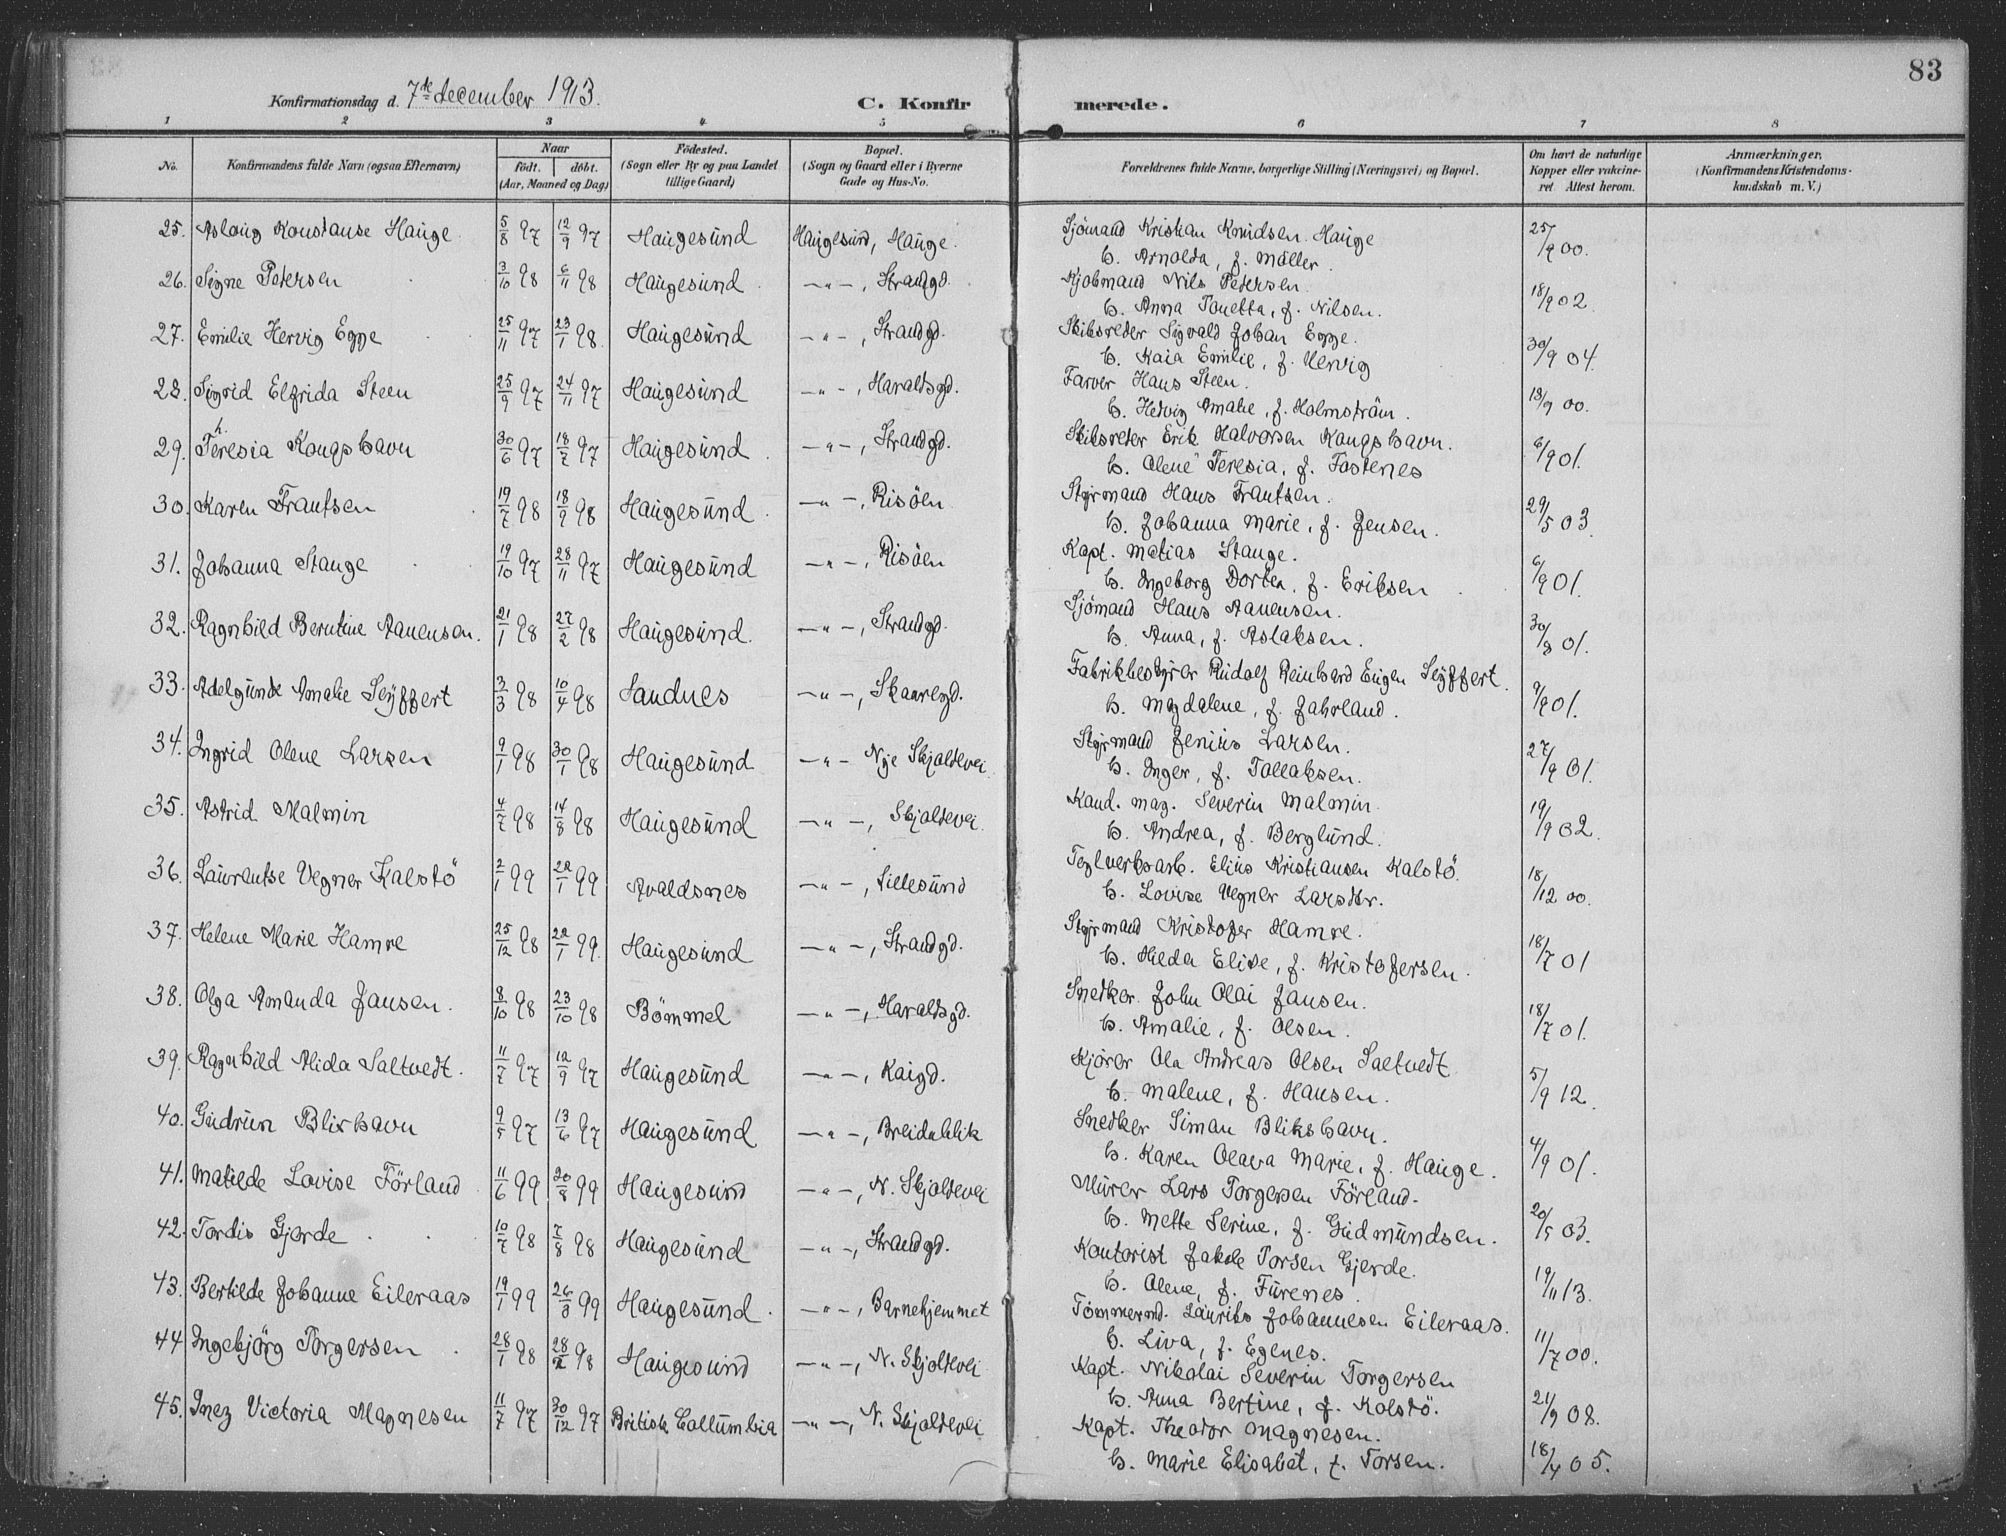 83
Konfirmationsdag d. 7de december 1913.
C. Konfirmerede.
1 2 3 4 5 6 7 8
No. Konfirmandens fulde Navn (ogsaa Efternavn) Naar født. døbt. (Aar, Maaned og Dag) Fødested. (Sogn eller By og paa Landet tillige Gaard) Bopæl. (Sogn og Gaard eller i Byerne Gade og Hus-No. Forældrenes fulde Navne, borgerlige Stilling (Næringsvei) og Bopæl. Om havt de naturlige Kopper eller vakcineret Attest herom. Anmærkninger. (Konfirmandens Kristendomskundskab m. V.)
25. Aslaug Konstanse Hauge. 5/8 97 12/9 97 Haugesund Haugesund, Hauge. Sjömand Kristian Knudsen Hauge 25/9 00.
h. Arnolda, f. Möller.
26. Signe Petersen 3/10 98 6/11 98 Haugesund. —"—, Strandgd. Kjöbmand Nils Petersen. 18/9 02
h. Anna Tonetta, f. Nilsen.
27. Emilie Hervig Egge 25/11 97 23/1 98. Haugesund —"—, Strandgd. Skibsreder Sigvald Johan Egge. 30/9 04.
h. Kaia Emilie, f. Hervig
28. Sigrid Elfrida Steen 25/9 97 24/11 97 Haugesund —"—, Haraldsgd. Farver Hans Steen. 18/9 00.
h. Hedvig Amalie, f. Holmström.
29. Theresia Kongshavn 30/6 97 18/7 97 Haugesund. —"—, Strandgd. Skibsreder Erik Halvorsen Kongshavn. 6/9 01.
h. Olene Teresia, f. Fostenes
30. Karen Frantsen 19/7 98 18/9 98 Haugesund. —"—, Risöen Styrmand Hans Frantsen. 29/5 03.
h. Johanna Marie, f. Jensen.
31. Johanna Stange 19/10 97 28/11 97 Haugesund —"—, Risöen Kapt. Matias Stange. 6/9 01.
h. Ingeborg Dortea, f. Eriksen
32. Ragnhild Berntine Aanensen. 21/1 98 27/2 98 Haugesund. —"—, Strandgd. Sjömand Hans Aanensen. 30/8 01.
h. Anna, f. Aslaksen.
33. Adelgunde Amalie Seyffert 3/3 98 10/4 98 Sandnes —"—, Skaaregd. Fabrikbestyrer Rudolf Reinhard Eugen Seyffert. 9/9 01.
h. Magdalene, f. Jahrland.
34. Ingrid Olene Larsen 9/1 98 30/1 98 Haugesund —"— Nye Skjoldevei. Styrmand Jenius Larsen. 27/9 01.
h. Inger, f. Tollaksen.
35. Astrid Malmin 4/7 98 14/8 98 Haugesund —"—, Skjoldevei. Kand. mag. Severin Malmin. 19/9 02.
h. Andrea, f. Berglund.
36. Laurantse Vegner Kalstö 2/1 99 22/1 99 Avaldsnes —"—, Lillesund Teglverksarb. Elius Kristiansen Kalstö. 18/12 00.
h. Lovise Vegner Larsdtr.
37. Helene Marie Hamre 25/12 98 22/1 99. Haugesund —"—, Strandgd. Styrmand Kristofer Hamre. 18/7 01
h. Hilda Elise, f. Kristofersen.
38. Olga Amanda Jansen. 8/10 98 23/10 98 Bömmel —"—, Haraldsgd. Snedker John Olai Jansen. 18/7 01.
h. Amalie, f. Olsen.
39. Ragnhild Alida Saltvedt. 11/7 97 12/9 97 Haugesund —"—, Kaigd. Kjörer Ola Andreas Olsen Saltvedt 5/9 12.
h. Malene, f. Hansen.
40. Gudrun Blixhavn 9/5 97 13/6 97 Haugesund —"—, Breidablik Snedker Simon Blikshavn. 4/9 01.
h. Karen Olava Marie, f. Hauge.
41. Matilde Lovise Förland 11/6 99 20/8 99 Haugesund —"—, N. Skjoldevei Murer Lars Torgersen Förland. 20/5 03.
h. Mette Serine, f. Gudmundsen.
42. Tordis Gjerde. 10/7 98 7/8 98 Haugesund —"—, Strandgd. Kontorist Jakob Torsen Gjerde. 19/11 13.
h. Olene, f. Furenes.
43. Bertilde Johanne Eileraas 19/1 99 26/3 99 Haugesund. —"—, Barnehjemmet Tömmermd. Laurits Johannesen Eileraas. 11/7 00.
h. Liva, f. Egenes.
44 Ingebjörg Torgersen. 28/1 98 28/2 98 Haugesund —"—, N. Skjoldevei Kapt. Nikolai Severin Torgersen 21/9 08.
h. Anna Bertine, f. Kolstö.
45. Inez Victoria Magnesen 11/7 97 30/12 97 British Collumbia —"—, N. Skjoldevei Kapt. Theodor Magnesen. 18/4 05.
h. Marie Elisabet, f. Torsen.